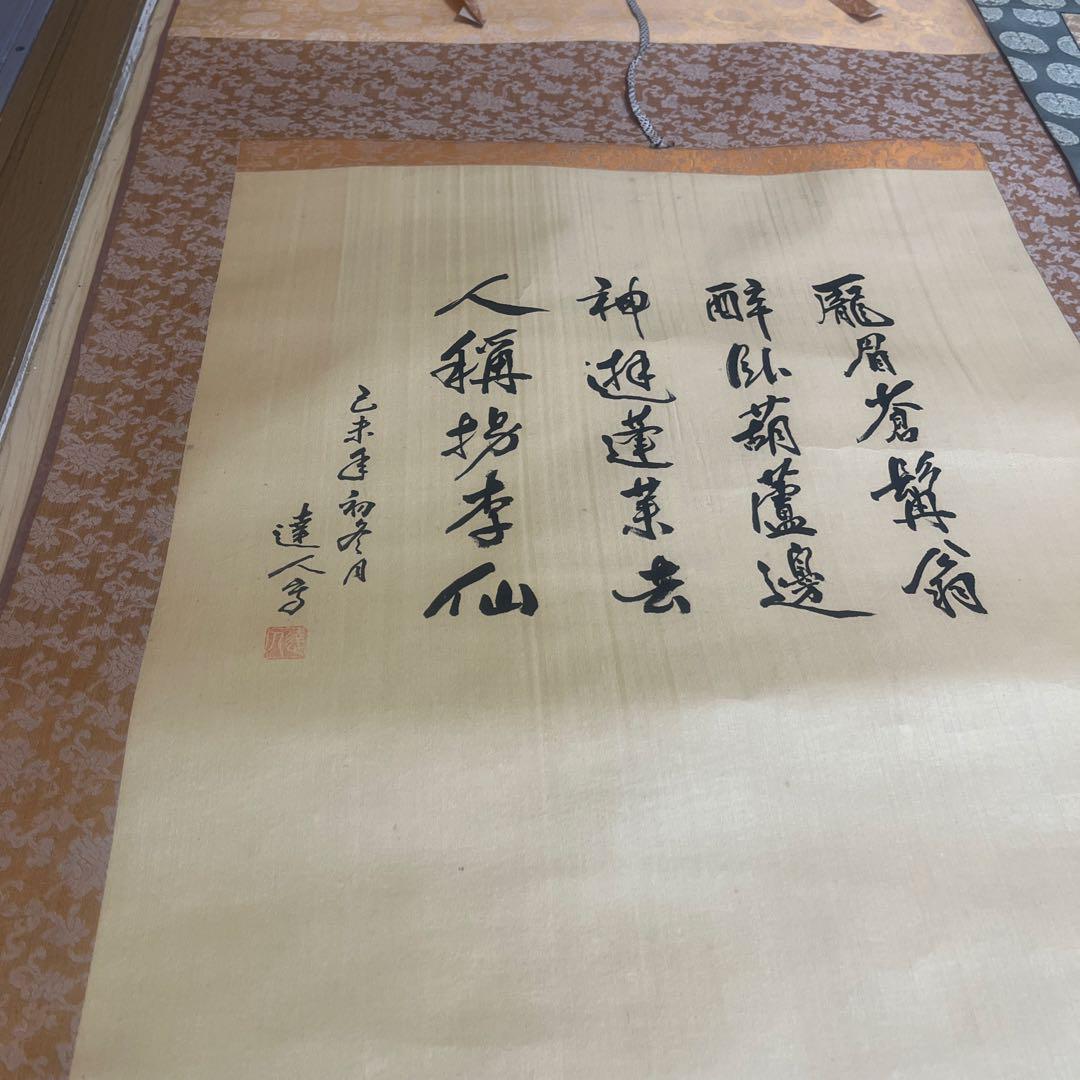 龎眉蒼髯翁
醉臥葫蘆邊
神遊蓬莱去
人稱拐李仙
己未年初冬月
達人写
達人